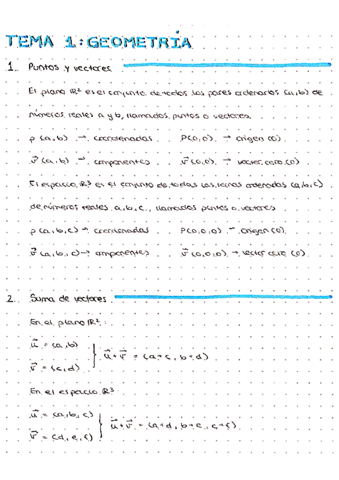 TEMA 1: GEOMETRÍA
1. Puntos y vectores
El plano ℝ² es el conjunto de todos los pares ordenados (a,b) de
números reales a y b, llamados puntos o vectores.
p (a,b) → coordenadas P(0,0) → origen (0)
v⃗ (a,b) → componentes v⃗ (0,0) → vector cero (0)
El espacio ℝ³ es el conjunto de todas las ternas ordenadas (a,b,c)
de números reales a, b, c, llamados puntos o vectores
p (a,b,c) → coordenadas P(0,0,0) → origen (0)
v⃗ (a,b,c) → componentes v⃗ (0,0,0) → vector cero (0)
2. Suma de vectores
En el plano ℝ²:
u⃗ = (a,b)
v⃗ = (c,d)
} u⃗ + v⃗ = (a+c, b+d)
En el espacio ℝ³
u⃗ = (a,b,c)
v⃗ = (d,e,f)
} u⃗ + v⃗ = (a+d, b+e, c+f)